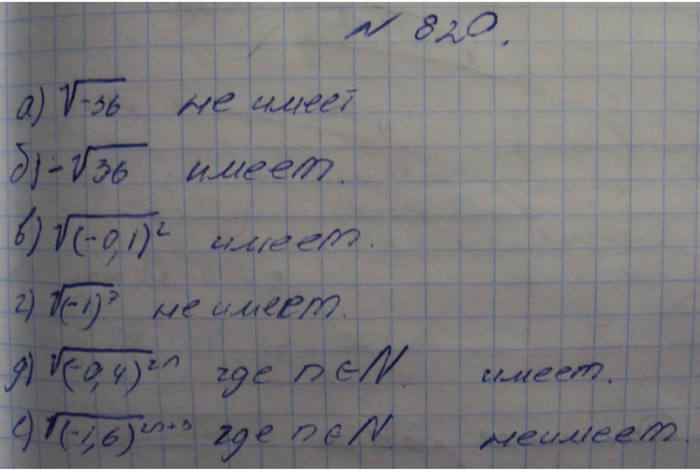 № 820.
а) √-36 не имеет
б) -√36 имеет.
в) √(-0,1)² имеет.
г) √(-1)³ не имеет.
д) √(-0,4)²ⁿ где n∈N. имеет.
е) √(-1,6)²ⁿ⁺³ где n∈N не имеет.